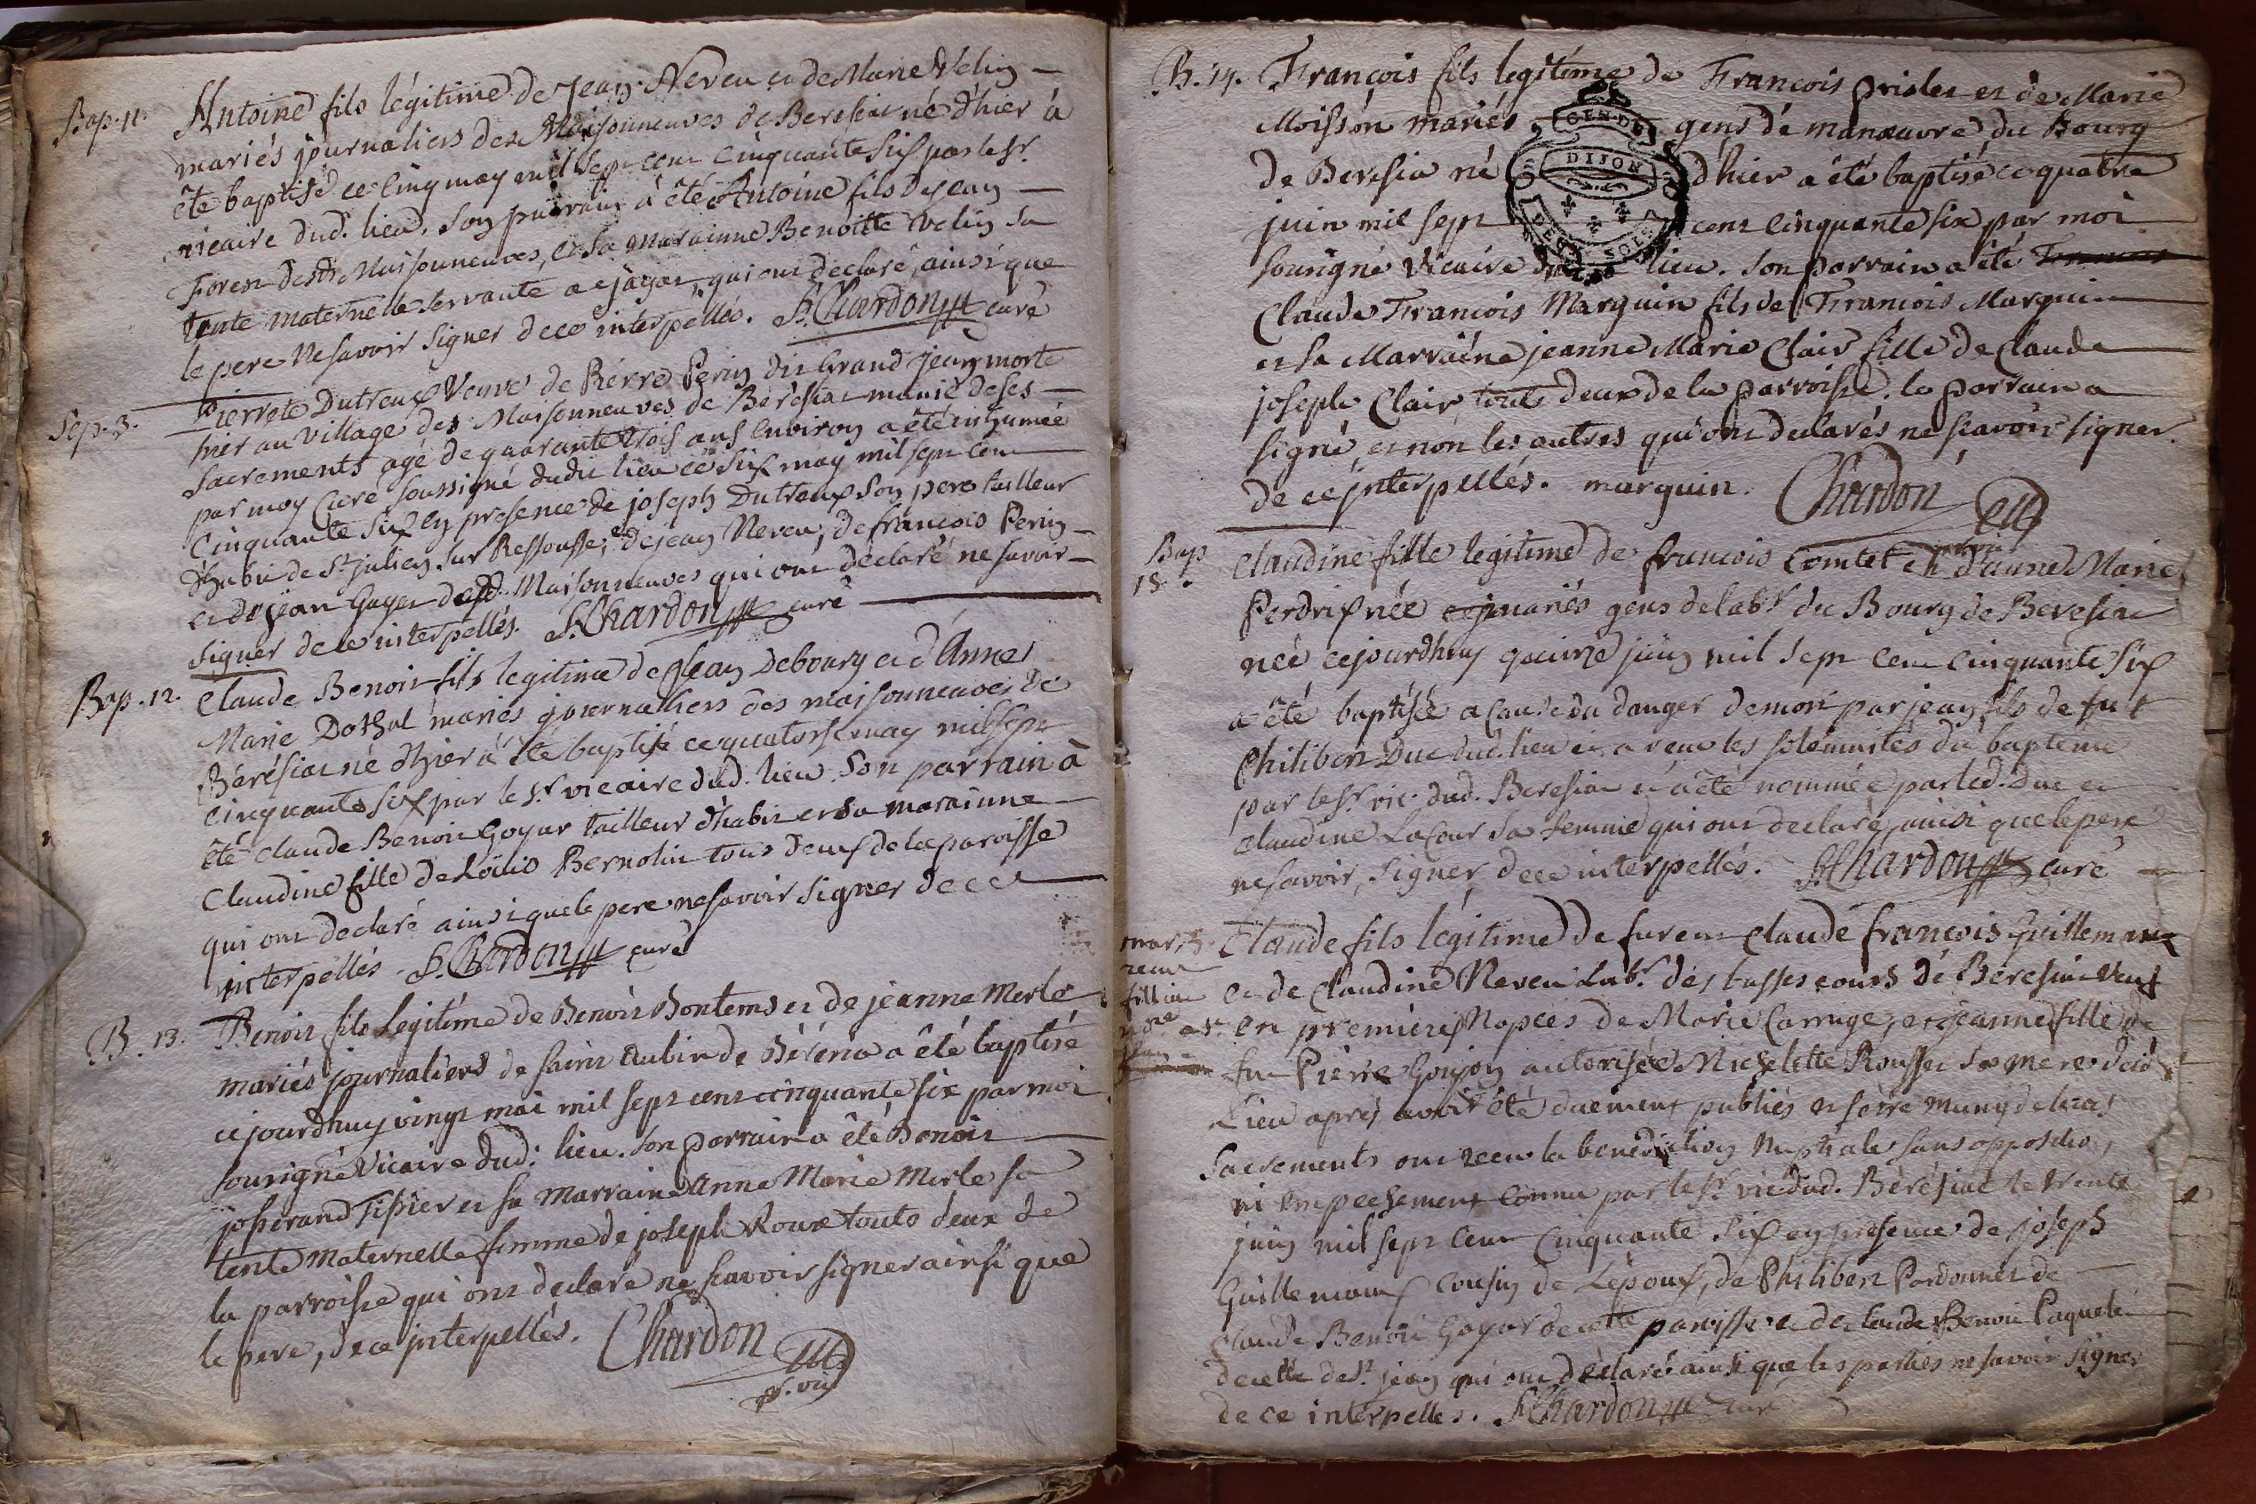 Bap. 11.
Antoine fils légitime de Jean Neveu et de Marie Velin
mariés journaliers des Maisonneuves de Beresiat né d'hier à
été baptisé ce cinq may mil sept cent cinquante six par le sr.
vicaire dud. lieu. son parrain à été Antoine fils de Jean
Forest desd. Maisonneuves, et sa marainne Benoitte Velin sa
tante maternelle servante a Jayat, qui ont declaré, ainsi que
le pere ne savoir signer de ce interpellés. Chardon curé
Sep. 3.
Pierrete Dutreux veuve de Pierre Perin dit Grand Jean morte
hier au village des Maisonneuves de Beresiat munie de ses
sacrements agé de quarante trois ans environ a été inhumée
par moy Curé soussigné dudit lieu ce six may mil sept cent
cinquante six en presence de joseph Dutreux son pere tailleur
d'habit de St julien sur Ressousse, de jean Neveu, de françois Perin
et de jean Goyer desd. Maisonneuves qui ont déclaré ne savoir
signer de ce interpellés. Chardon curé
Bap. 12.
Claude Benoit fils legitime de Jean Debourg et d'Anne
Marie Dothal mariés journalliers des maisonneuves de
Bérésiat né d'hier à été baptisé ce quatorse may mil sept
cinquante six par le sr vicaire dud. lieu. son parrain à
été claude Benoit Goyar tailleur d'habit et sa marainne
Claudine fille de Loüis Bernolin tous deux de la paroisse
qui ont declaré ainsi que le pere ne savoir signer de ce
interpellés. Chardon curé
B. 13.
Benoit fils Legitime de Benoit Bontems et de jeanne Merle
mariés journaliers de saint Aubin de Bérénia a été baptisé
ce jourdhuy vingt mai mil sept cent cinquante six par moi
sousigné Vicaire dud. lieu. son parrain a été Benoit
josserand Tissier et sa marraine Anne Marie Merle sa
tente Maternelle femme de joseph Roux touts deux de
la parroisse qui ont declare ne scavoir signer ainsi que
le pere, de ce jnterpellés. Chardon
vic
B. 14.
François fils legitime de François prisler et de Marie
Moisson mariés gens de manœuvre du Bourg
de Beresia né d'hier a été baptisé ce quatre
juin mil sept cent cinquante six par moi
sousigné Vicaire dud. lieu. son parrain a été
Claude François Marguin fils de François Marguin
et sa Marraine jeanne Marie Clair fille de Claude
joseph Clair touts deux de la parroisse. le parrain a
signé, et non les autres qui ont declarés ne scavoir signer.
de ce jnterpellés. marguin. Chardon
GEN. DE
DIJON
Bap
15.
Claudine fille legitime de francois Comtet et d'anne Marie
Perdrix née mariés gens de labr du Bourg de Beresiat
née cejourdhuy quinze juin mil sept cent cinquante six
a été baptisée a cause du danger de mort par jean fils de fut
Philibert Duc dud. lieu et a reçu les solemnités du baptême
par le sr vic. dud. Beresiat et a été nommée par led. Duc et
Claudine Lacour sa femme qui ont declaré, ainsi que le pere
ne savoir signer, de ce interpellés. Chardon curé
mar.
Claude fils légitime de furent Claude françois Guillemaux
et de Claudine Neveu Labr. des basses cours de Beresiat veuf
en premieres Nopces de Marie Carruge, et jeanne fille de
fu Pierre Goujon autorisée Michelette Rousset sa mere dud
Lieu après avoir été duement publiés et s'etre muny de leurs
sacrements ont recu la benediction Nuptiale sans opposition,
ni empechement connu par le sr. vic. dud. Bérésiat le trente
juin mil sept cent cinquante six en presence de joseph
Guillemaux cousin de l'époux, de Philibert Pardonnet de
Claude Benoit Goyar de cette paroisse et de claude Benoit Paquelet
de celle de St. jean qui ont déclaré ainsi que les parties ne savoir signer
de ce interpellés. Chardon curé